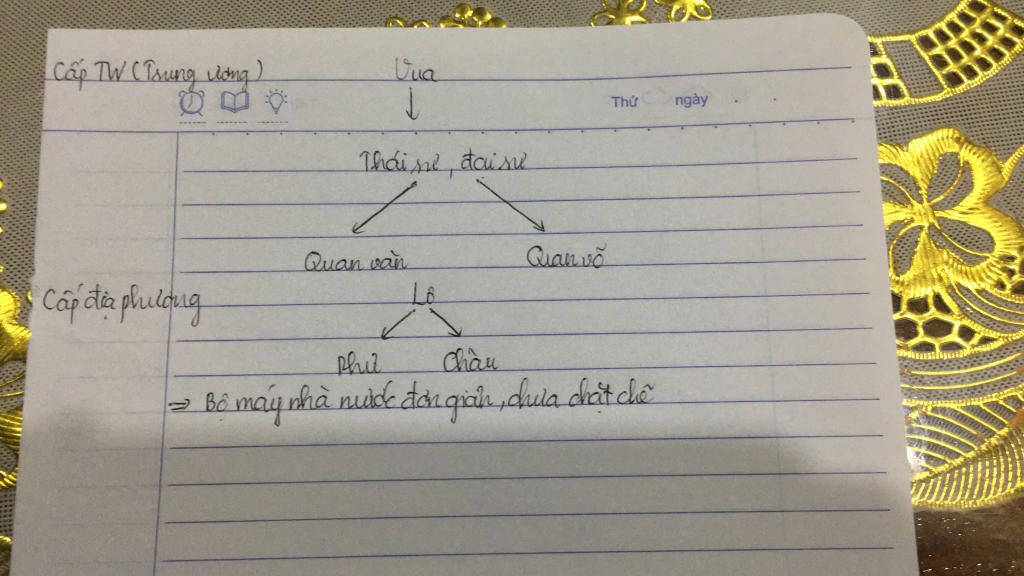 Cấp TW (Trung ương) Vua
Thứ ngày
Thái sư, đại sư
Quan văn Quan võ
Cấp địa phương Lộ
Phủ Châu
=> Bộ máy nhà nước đơn giản, chưa chặt chẽ